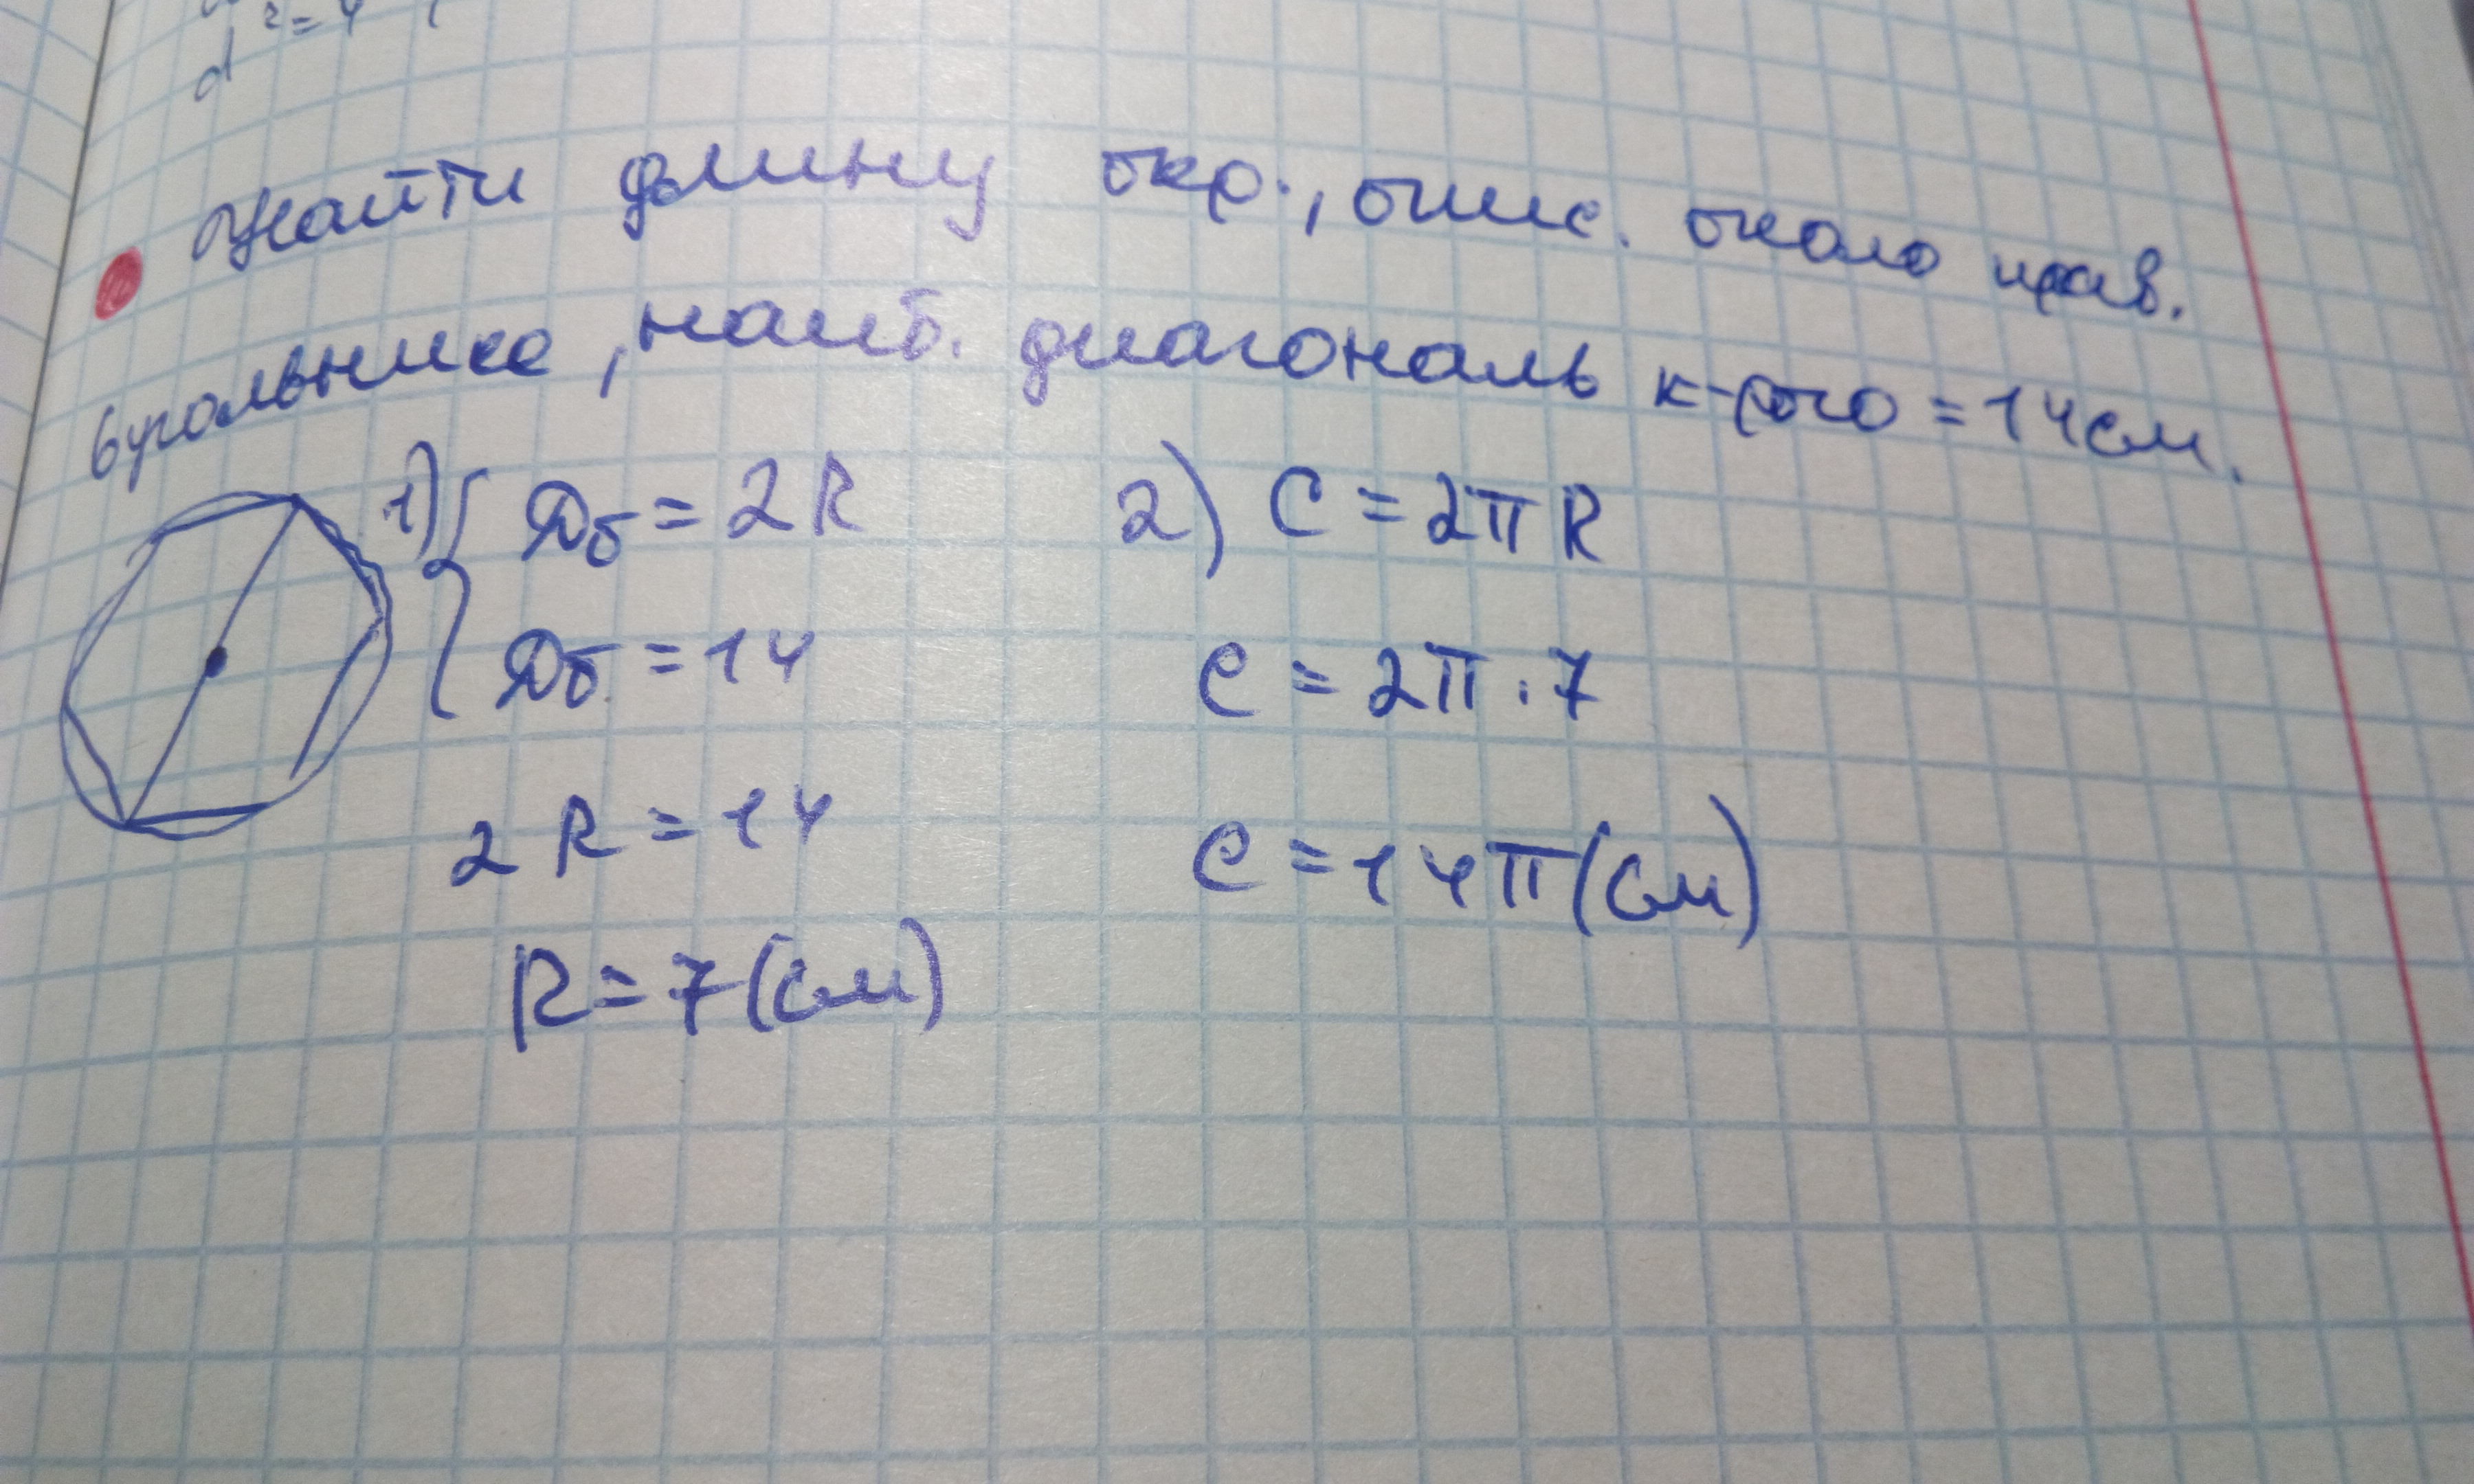 d² = 4
Найти длину окр., опис. около прав.
6угольника, наиб. диагональ к-рого = 14 см.
1) { Дб = 2R
Дб = 14
2R = 14
R = 7 (см)
2) C = 2πR
C = 2π · 7
C = 14π (см)